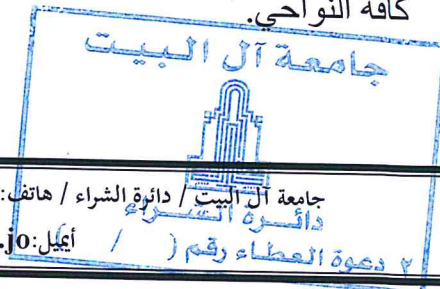 كافة النواحي.
جامعة آل البيت
جامعة آل البيت / دائرة الشراء / هاتف:
دائرة الشراء
أيميل:
jo.
دعوة العطاء رقم ( / )